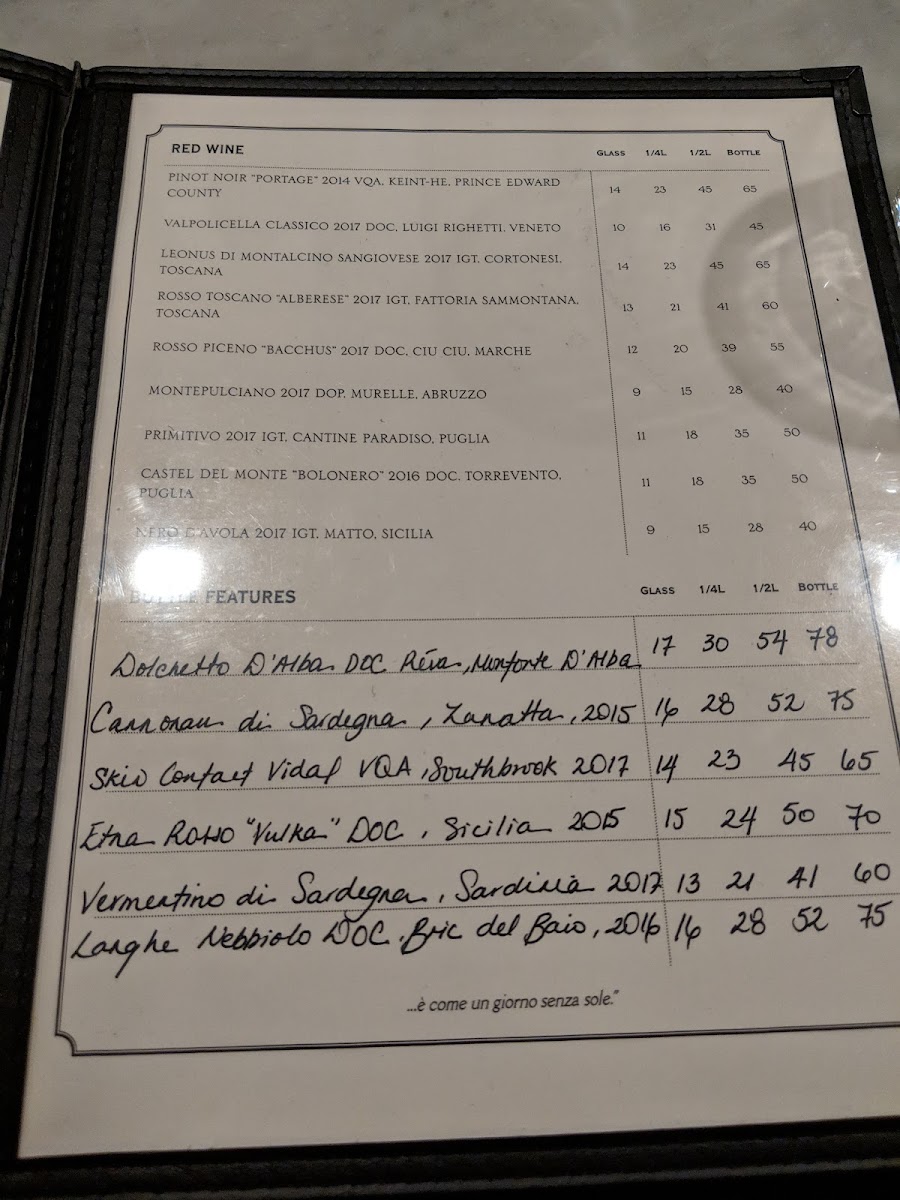 RED WINE GLASS 1/4L 1/2L BOTTLE
PINOT NOIR "PORTAGE" 2014 VQA, KEINT-HE, PRINCE EDWARD
COUNTY 14 23 45 65
VALPOLICELLA CLASSICO 2017 DOC, LUIGI RIGHETTI, VENETO 10 16 31 45
LEONUS DI MONTALCINO SANGIOVESE 2017 IGT, CORTONESI,
TOSCANA 14 23 45 65
ROSSO TOSCANO "ALBERESE" 2017 IGT, FATTORIA SAMMONTANA,
TOSCANA 13 21 41 60
ROSSO PICENO "BACCHUS" 2017 DOC, CIU CIU, MARCHE 12 20 39 55
MONTEPULCIANO 2017 DOP, MURELLE, ABRUZZO 9 15 28 40
PRIMITIVO 2017 IGT, CANTINE PARADISO, PUGLIA 11 18 35 50
CASTEL DEL MONTE "BOLONERO" 2016 DOC, TORREVENTO,
PUGLIA 11 18 35 50
NERO D'AVOLA 2017 IGT, MATTO, SICILIA 9 15 28 40
BOTTLE FEATURES GLASS 1/4L 1/2L BOTTLE
Dolchetto D'Alba DOC Réva, Monforte D'Alba 17 30 54 78
Cannonau di Sardegna, Zanatta, 2015 16 28 52 75
Skin Contact Vidal VQA, Southbrook 2017 14 23 45 65
Etna Rosso "Vulka" DOC, Sicilia 2015 15 24 50 70
Vermentino di Sardegna, Sardinia 2017 13 21 41 60
Langhe Nebbiolo DOC, Bric del Baio, 2016 16 28 52 75
...è come un giorno senza sole."